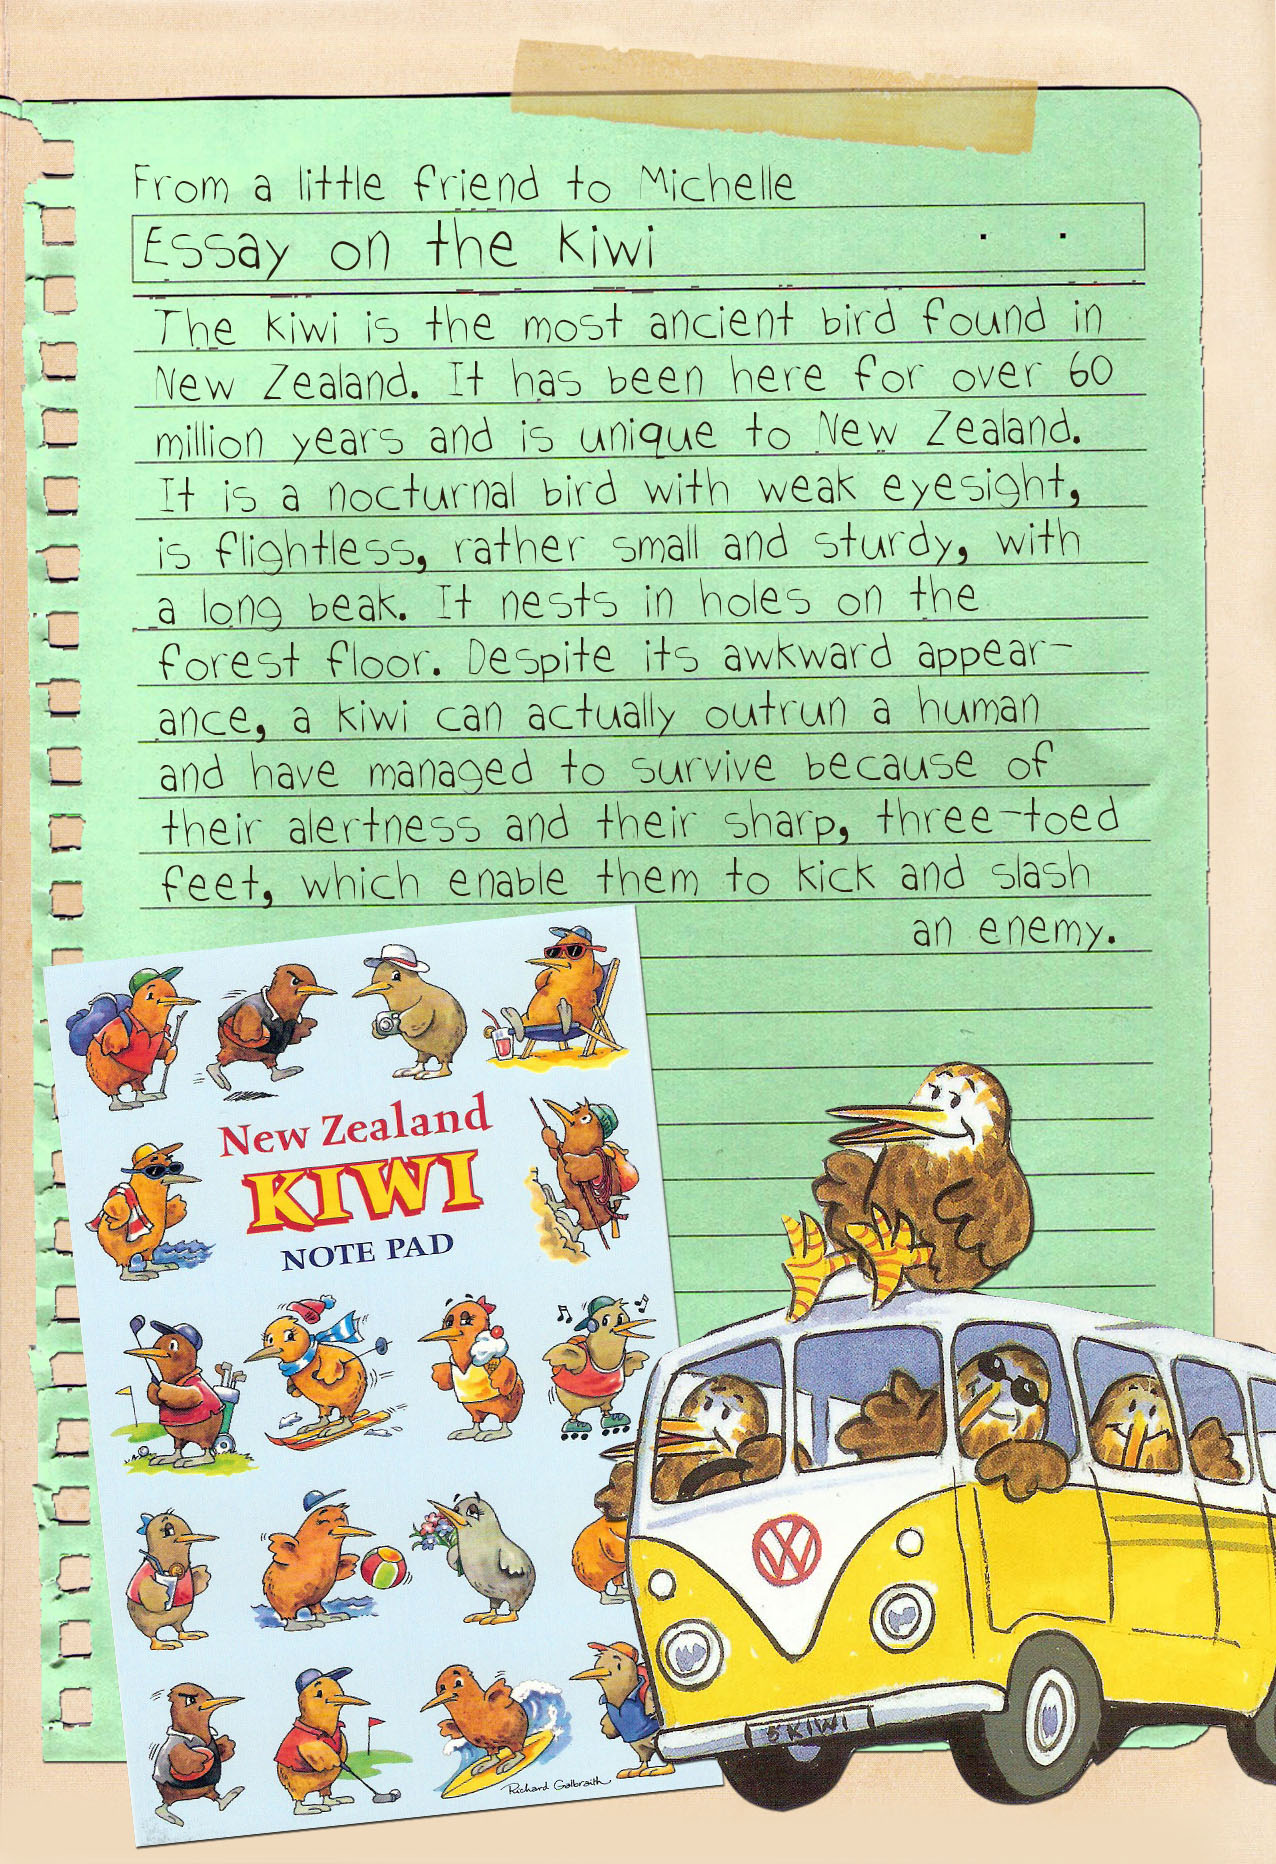 From a little friend to Michelle
Essay on the kiwi
The kiwi is the most ancient bird found in
New Zealand. It has been here for over 60
million years and is unique to New Zealand.
It is a nocturnal bird with weak eyesight,
is flightless, rather small and sturdy, with
a long beak. It nests in holes on the
forest floor. Despite its awkward appear-
ance, a kiwi can actually outrun a human
and have managed to survive because of
their alertness and their sharp, three-toed
feet, which enable them to kick and slash
an enemy.
New Zealand
KIWI
NOTE PAD
VW
5 KIWI
Richard Galbraith